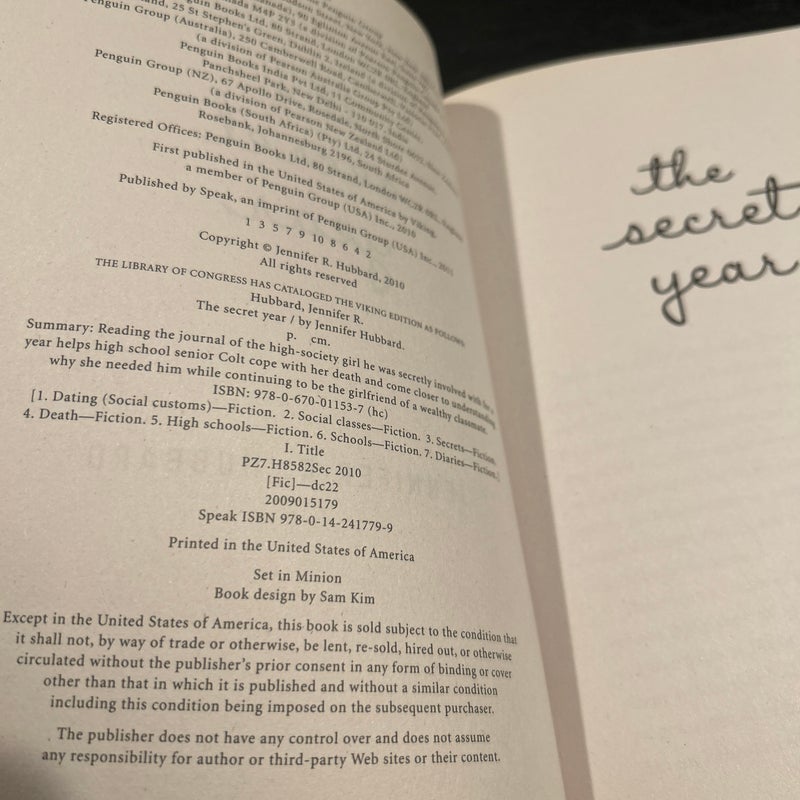 Penguin Group (Australia), 250 Camberwell Road, Camberwell,
(a division of Pearson Australia Group Pty Ltd)
Penguin Books India Pvt Ltd, 11 Community Centre,
Panchsheel Park, New Delhi - 110 017, India
Penguin Group (NZ), 67 Apollo Drive, Rosedale, North Shore
(a division of Pearson New Zealand Ltd)
Penguin Books (South Africa) (Pty) Ltd, 24 Sturdee Avenue,
Rosebank, Johannesburg 2196, South Africa
Registered Offices: Penguin Books Ltd, 80 Strand, London WC2R 0RL, England
First published in the United States of America by Viking,
a member of Penguin Group (USA) Inc., 2010
Published by Speak, an imprint of Penguin Group (USA) Inc., 2011
1 3 5 7 9 10 8 6 4 2
Copyright © Jennifer R. Hubbard, 2010
All rights reserved
THE LIBRARY OF CONGRESS HAS CATALOGED THE VIKING EDITION AS FOLLOWS
Hubbard, Jennifer R.
The secret year / by Jennifer Hubbard.
p. cm.
Summary: Reading the journal of the high-society girl he was secretly involved with for a
year helps high school senior Colt cope with her death and come closer to understanding
why she needed him while continuing to be the girlfriend of a wealthy classmate.
ISBN: 978-0-670-01153-7 (hc)
[1. Dating (Social customs)—Fiction. 2. Social classes—Fiction. 3. Secrets—Fiction.
4. Death—Fiction. 5. High schools—Fiction. 6. Schools—Fiction. 7. Diaries—Fiction.]
I. Title
PZ7.H8582Sec 2010
[Fic]—dc22
2009015179
Speak ISBN 978-0-14-241779-9
Printed in the United States of America
Set in Minion
Book design by Sam Kim
Except in the United States of America, this book is sold subject to the condition that
it shall not, by way of trade or otherwise, be lent, re-sold, hired out, or otherwise
circulated without the publisher's prior consent in any form of binding or cover
other than that in which it is published and without a similar condition
including this condition being imposed on the subsequent purchaser.
The publisher does not have any control over and does not assume
any responsibility for author or third-party Web sites or their content.
the
secret
year